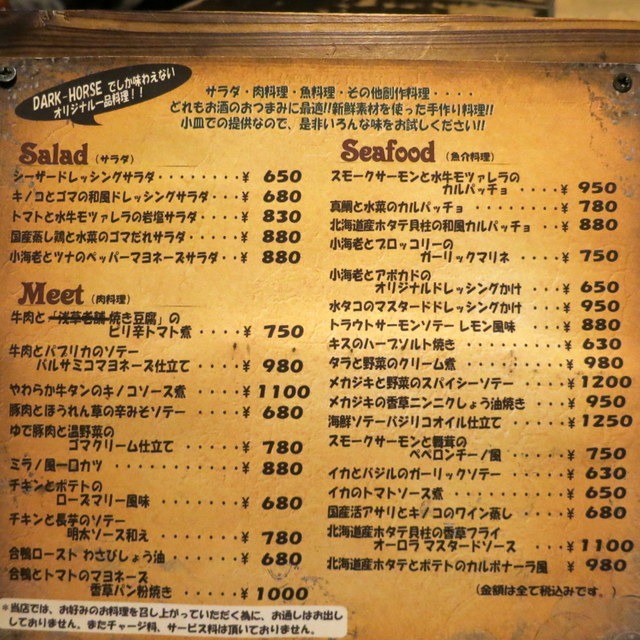 DARK-HORSE でしか味わえない
オリジナル一品料理!!
サラダ・肉料理・魚料理・その他創作料理・・・・
どれもお酒のおつまみに最適!!新鮮素材を使った手作り料理!!
小皿での提供なので、是非いろんな味をお試しください!!
Salad (サラダ)
シーザードレッシングサラダ・・・・・・・・¥ 650
キノコとゴマの和風ドレッシングサラダ・・¥ 680
トマトと水牛モツァレラの岩塩サラダ・・・¥ 830
国産蒸し鶏と水菜のゴマだれサラダ・・・・¥ 880
小海老とツナのペッパーマヨネーズサラダ・・¥ 880
Meet (肉料理)
牛肉と「浅草老舗 焼き豆腐」の
ピリ辛トマト煮 ・・・・¥ 750
牛肉とパプリカのソテー
バルサミコマヨネーズ仕立て ・・・・¥ 980
やわらか牛タンのキノコソース煮 ・・・・¥ 1100
豚肉とほうれん草の辛みそソテー ・・・・¥ 680
ゆで豚肉と温野菜の
ゴマクリーム仕立て ・・・・・¥ 780
ミラノ風一口カツ ・・・・・・・・・・¥ 880
チキンとポテトの
ローズマリー風味 ・・・・・¥ 680
チキンと長芋のソテー
明太ソース和え ・・・・・¥ 780
合鴨ロースト わさびしょう油 ・・・・・¥ 680
合鴨とトマトのマヨネーズ
香草パン粉焼き ・・・・・¥ 1000
*当店では、お好みのお料理を召し上がっていただく為に、お通しはお出し
しておりません。またチャージ料、サービス料は頂いておりません。
Seafood (魚介料理)
スモークサーモンと水牛モツァレラの
カルパッチョ ・・・・¥ 950
真鯛と水菜のカルパッチョ ・・・・・・・¥ 780
北海道産ホタテ貝柱の和風カルパッチョ ・・¥ 880
小海老とブロッコリーの
ガーリックマリネ ・・・・¥ 750
小海老とアボカドの
オリジナルドレッシングかけ ・・・・¥ 650
水タコのマスタードドレッシングかけ ・・・¥ 950
トラウトサーモンソテー レモン風味 ・・・・¥ 880
キスのハーブソルト焼き ・・・・・・・・¥ 630
タラと野菜のクリーム煮 ・・・・・・・・¥ 980
メカジキと野菜のスパイシーソテー ・・・・¥ 1200
メカジキの香草ニンニクしょう油焼き ・・・¥ 950
海鮮ソテーバジリコオイル仕立て ・・・・・¥ 1250
スモークサーモンと舞茸の
ペペロンチーノ風 ・・・・・¥ 750
イカとバジルのガーリックソテー ・・・・・¥ 630
イカのトマトソース煮 ・・・・・・・・・¥ 650
国産活アサリとキノコのワイン蒸し ・・・・¥ 680
北海道産ホタテ貝柱の香草フライ
オーロラ マスタードソース ・・・・¥ 1100
北海道産ホタテとポテトのカルボナーラ風 ・¥ 980
(金額は全て税込みです。)